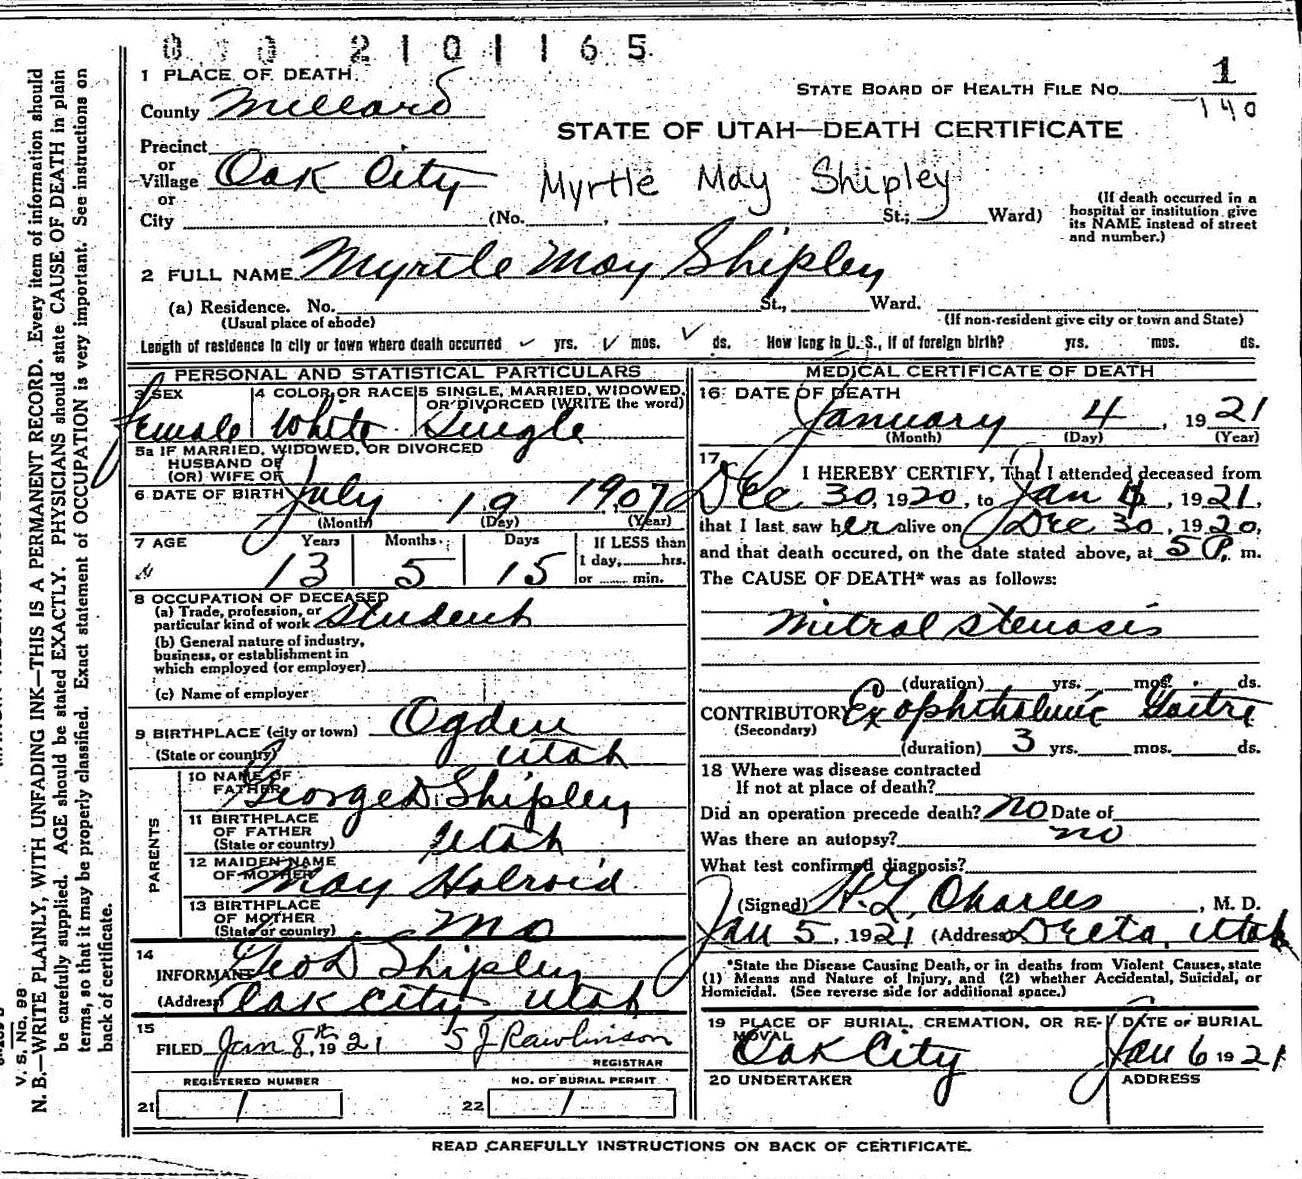 0 0 0 2 1 0 1 1 6 5
1 PLACE OF DEATH
County Millard
STATE BOARD OF HEALTH FILE NO. 1
140
STATE OF UTAH—DEATH CERTIFICATE
Precinct
or
Village Oak City
Myrtle May Shipley
or
City (No. , St.; Ward)
(If death occurred in a
hospital or institution give
its NAME instead of street
and number.)
2 FULL NAME Myrtle May Shipley
(a) Residence. No. St., Ward.
(Usual place of abode) (If non-resident give city or town and State)
Length of residence in city or town where death occurred ✓ yrs. ✓ mos. ✓ ds. How long in U. S., if of foreign birth? yrs. mos. ds.
PERSONAL AND STATISTICAL PARTICULARS
3 SEX Female
4 COLOR OR RACE White
5 SINGLE, MARRIED, WIDOWED,
OR DIVORCED (WRITE the word)
Single
5a IF MARRIED, WIDOWED, OR DIVORCED
HUSBAND OF
(OR) WIFE OF
6 DATE OF BIRTH July 19 1907
(Month) (Day) (Year)
7 AGE Years Months Days If LESS than
1 day, hrs.
or min.
13 5 15
8 OCCUPATION OF DECEASED
(a) Trade, profession, or
particular kind of work Student
(b) General nature of industry,
business, or establishment in
which employed (or employer)
(c) Name of employer
9 BIRTHPLACE (city or town) Ogden
(State or country) Utah
PARENTS
10 NAME OF
FATHER George D. Shipley
11 BIRTHPLACE
OF FATHER
(State or country) Utah
12 MAIDEN NAME
OF MOTHER May Holroid
13 BIRTHPLACE
OF MOTHER
(State or country) Mo
14
INFORMANT Geo D Shipley
(Address) Oak City, Utah
15
FILED Jan 8th, 1921 S J Rawlinson
REGISTRAR
REGISTERED NUMBER
21 1
NO. OF BURIAL PERMIT
22 1
MEDICAL CERTIFICATE OF DEATH
16 DATE OF DEATH
January 4, 1921
(Month) (Day) (Year)
17
I HEREBY CERTIFY, That I attended deceased from
Dec 30, 1920, to Jan 4, 1921,
that I last saw her alive on Dec 30, 1920,
and that death occured, on the date stated above, at 5 P. m.
The CAUSE OF DEATH* was as follows:
Mitral Stenosis
(duration) yrs. mos. ds.
CONTRIBUTORY Exophthalmic Goitre
(Secondary)
(duration) 3 yrs. mos. ds.
18 Where was disease contracted
If not at place of death?
Did an operation precede death? no Date of
Was there an autopsy? no
What test confirmed diagnosis?
(Signed) H. L. Charles, M. D.
Jan 5, 1921 (Address) Delta, Utah
*State the Disease Causing Death, or in deaths from Violent Causes, state
(1) Means and Nature of Injury, and (2) whether Accidental, Suicidal, or
Homicidal. (See reverse side for additional space.)
19 PLACE OF BURIAL, CREMATION, OR RE-
MOVAL
Oak City
DATE OF BURIAL
Jan 6 1921
20 UNDERTAKER
ADDRESS
READ CAREFULLY INSTRUCTIONS ON BACK OF CERTIFICATE.
V. S. No. 88
N. B.—WRITE PLAINLY, WITH UNFADING INK—THIS IS A PERMANENT RECORD. Every item of information should
be carefully supplied. AGE should be stated EXACTLY. PHYSICIANS should state CAUSE OF DEATH in plain
terms, so that it may be properly classified. Exact statement of OCCUPATION is very important. See instructions on
back of certificate.